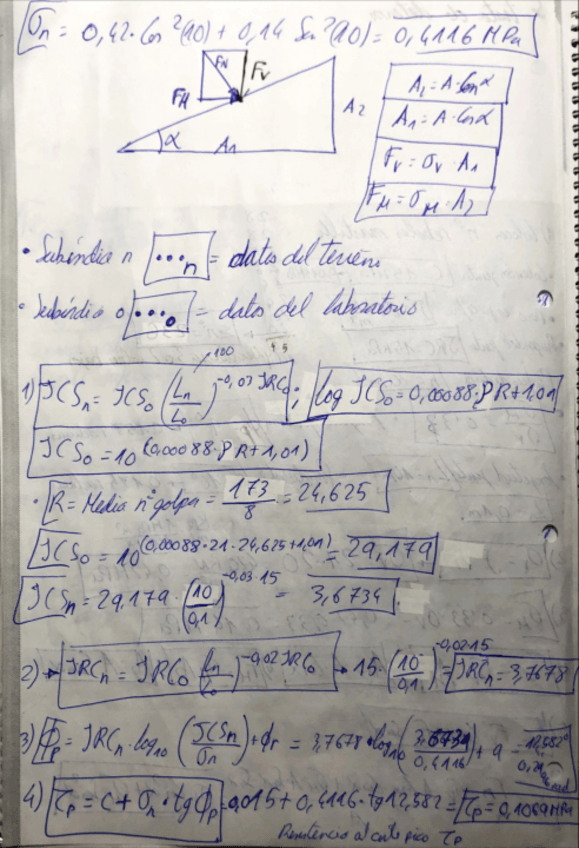 σn = 0,42·Cos²(10) + 0,14 Sen²(10) = 0,4116 MPa
FN
Fv
FH
A2
α
A1
A2 = A·Senα
A1 = A·cosα
Fv = σv·A1
FH = σH·A2
• Subíndice n ...n = datos del terreno
• Subíndice o ...o = datos del laboratorio
100
1) JCSn = JCS0 (Ln/L0)^-0,03 JRC0 ; log JCS0 = 0,00088·γR+1,01
JCS0 = 10^(0,00088·γR+1,01)
• R = Media nº golpes = 173/8 = 24,625
JCS0 = 10^(0,00088·21·24,625+1,01) = 29,179
JCSn = 29,179·(10/0,1)^-0,03·15 = 3,6734
2) → JRCn = JRC0 (Ln/L0)^-0,02 JRC0 → 15·(10/0,1)^-0,02·15 = JRCn = 3,7678
3) Φp = JRCn·log10 (JCSn/σn) + Φr = 3,7678·log10 (3,6734/0,4116) + 9 = 12,582º
4) τp = C + σn·tgΦp = 0,015 + 0,4116·tg12,582 = τp = 0,1069 MPa
Resistencia al corte pico τp